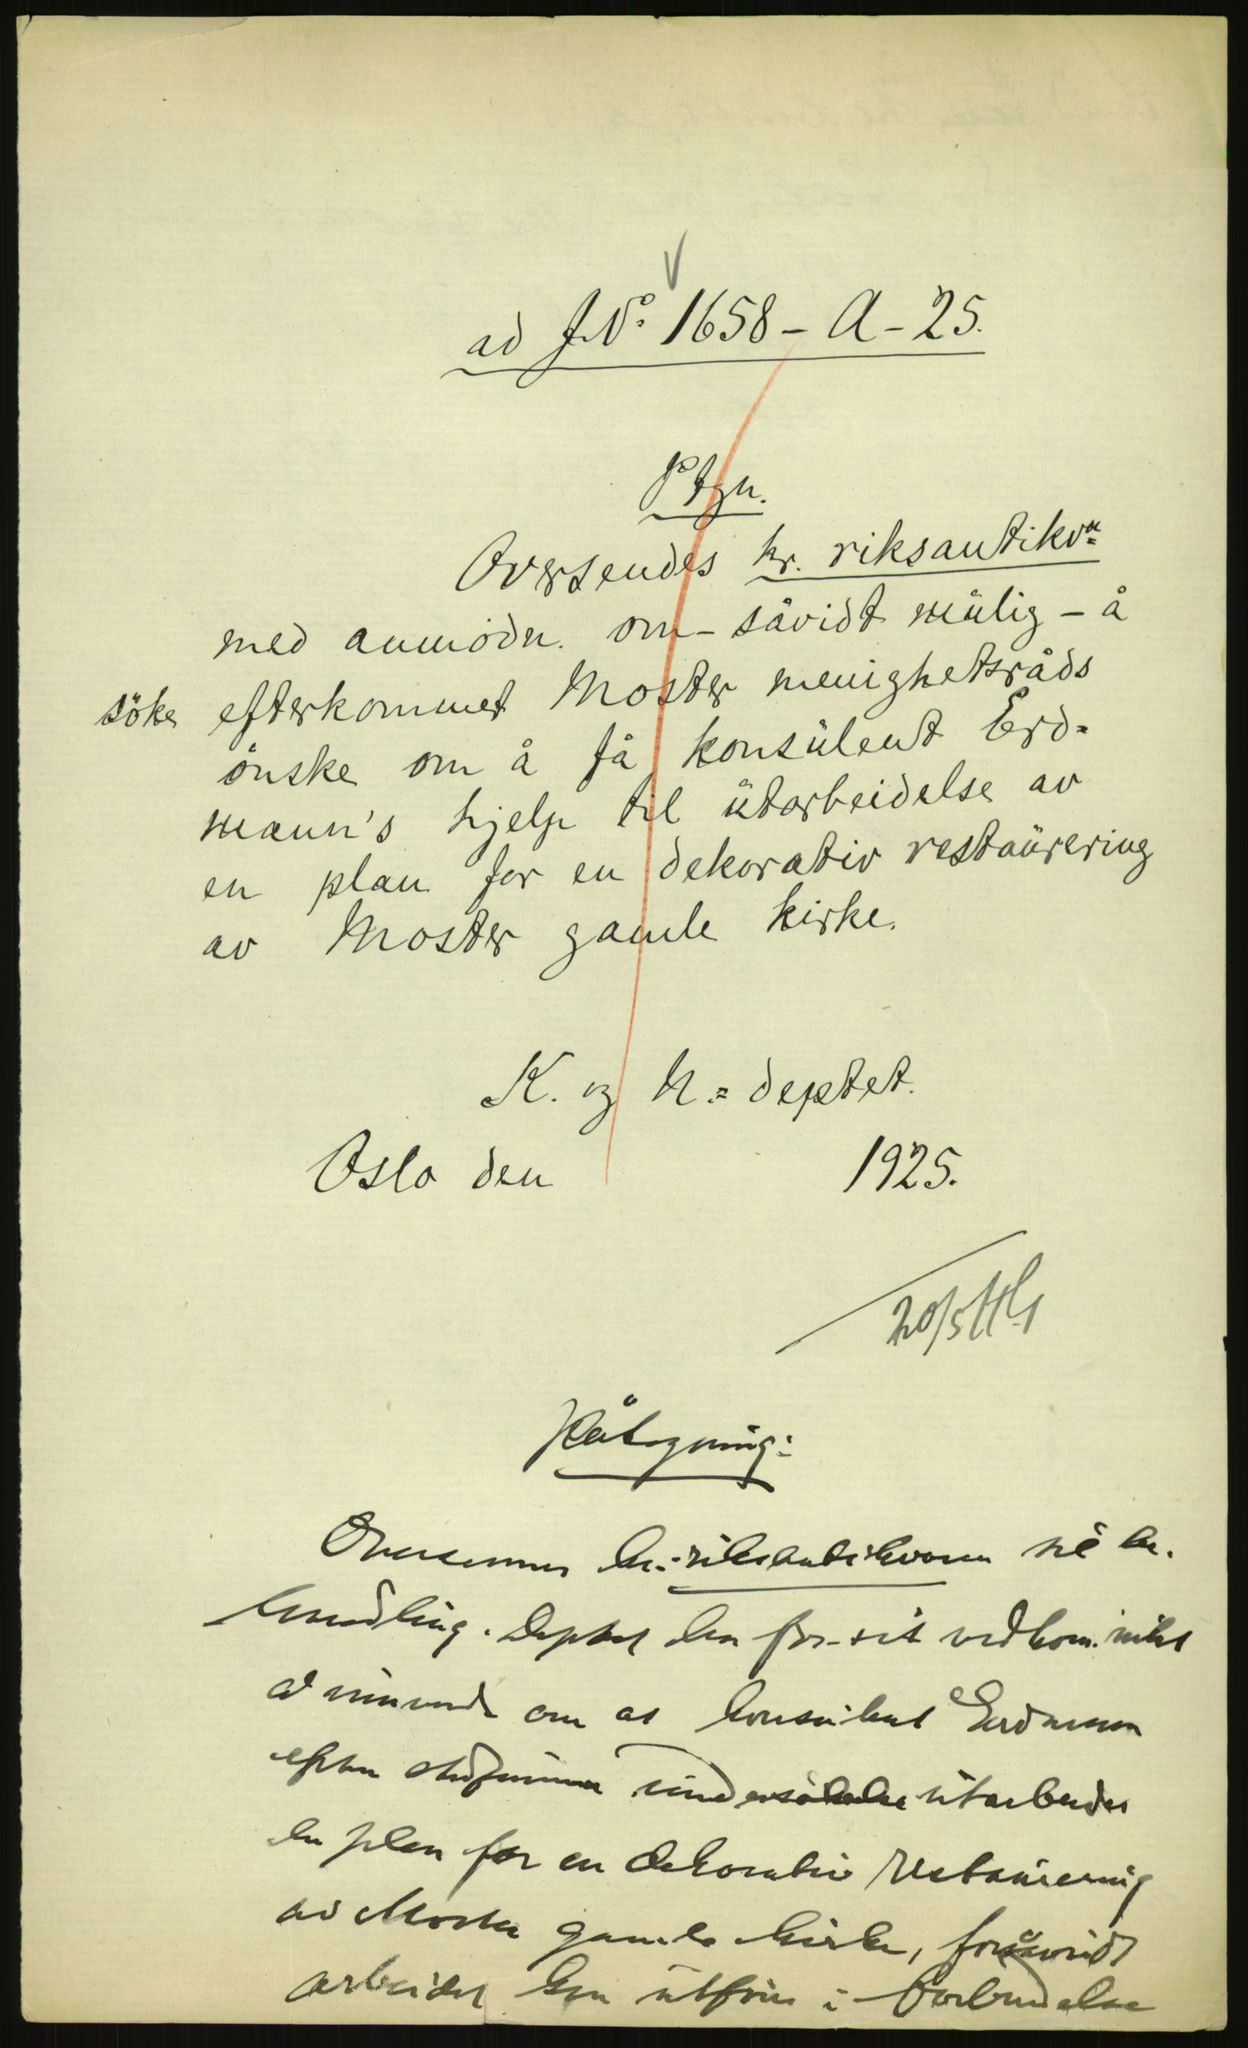 ad J.Nº 1658 – A – 25.
Ptgn.
Oversendes hr. riksantikv=
med anmodn. om – såvidt mulig – å
söke efterkommet Moster menighetsråds
ønske om å få konsulent Erd=
mann's hjelp til utarbeidelse av
en plan for en dekorativ restaurering
av Moster gamle kirke.
K. og U.=deptet.
Oslo den 1925.
20/5
Påtegning:
Oversendes hr. riksantikvaren til be-
handling. Deptet har for sit vedkom. intet
at innvende om at konsulent Erdmann
efter undersökelse utarbeider
en plan for en dekorativ restaurering
av Moster gamle kirke, forsåvidt
arbeidet kan utföres i forbindelse